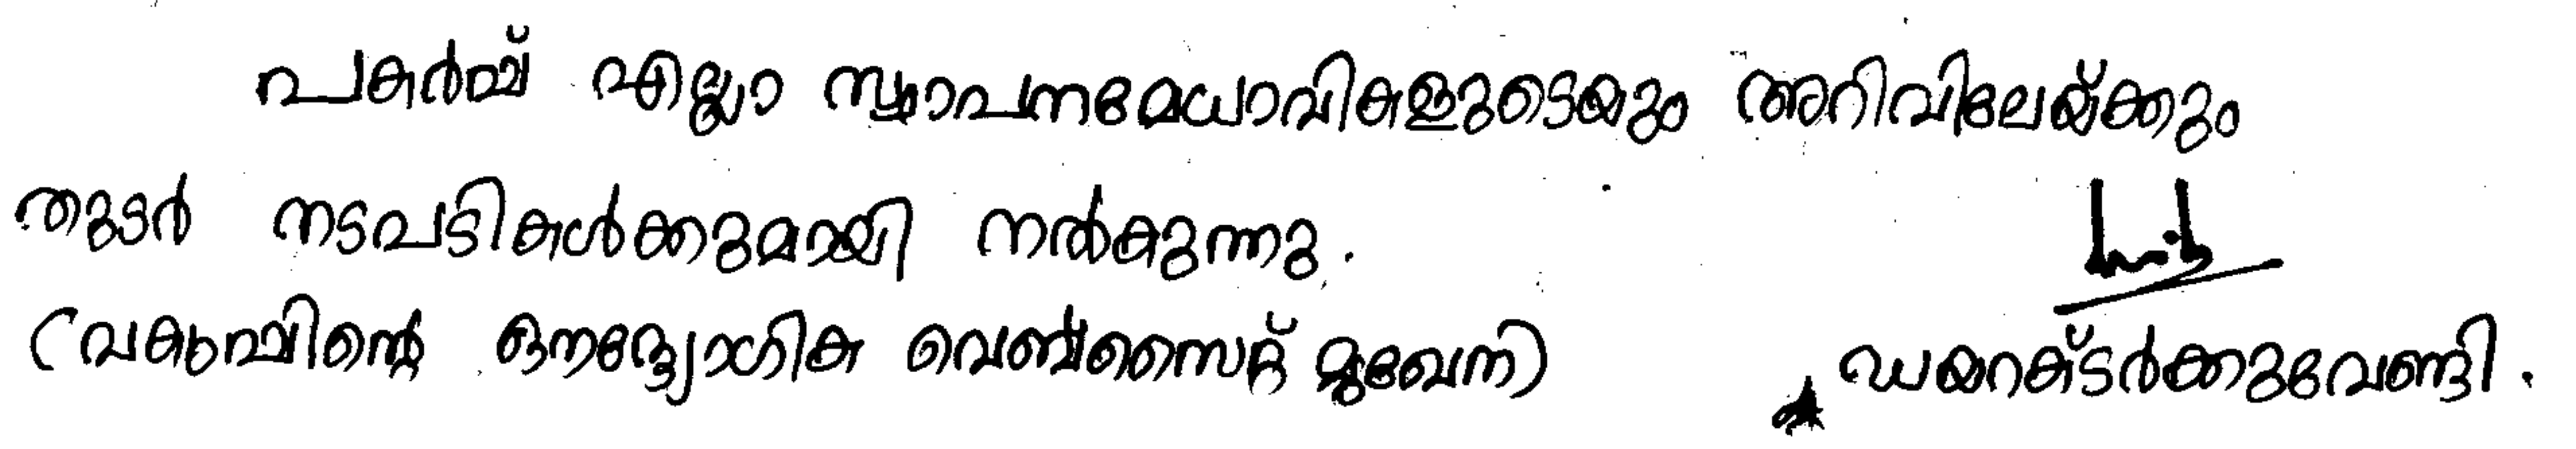 പകർപ്പ് എല്ലാ സ്ഥാപനമേധാവികളുടെയും അറിവിലേയ്ക്കും
തുടർ നടപടികൾക്കുമായി നൽകുന്നു.
(വകുപ്പിന്റെ ഔദ്യോഗിക വെബ്സൈറ്റ് മുഖേന) ഡയറക്ടർക്കുവേണ്ടി.